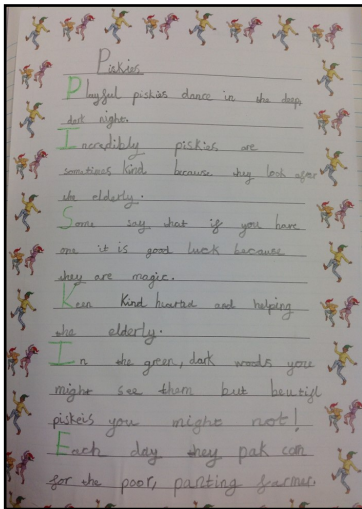 Piskies
Playful piskies dance in the deep,
dark night.
Incredibly piskies are
sometimes kind because they look after
the elderly.
Some say that if you have
one it is good luck because
they are magic.
Keen Kind hearted and helping
the elderly.
In the green, dark woods you
might see them but beutifl
piskeis you might not!
Each day they pak con
for the poor, panting farmer.